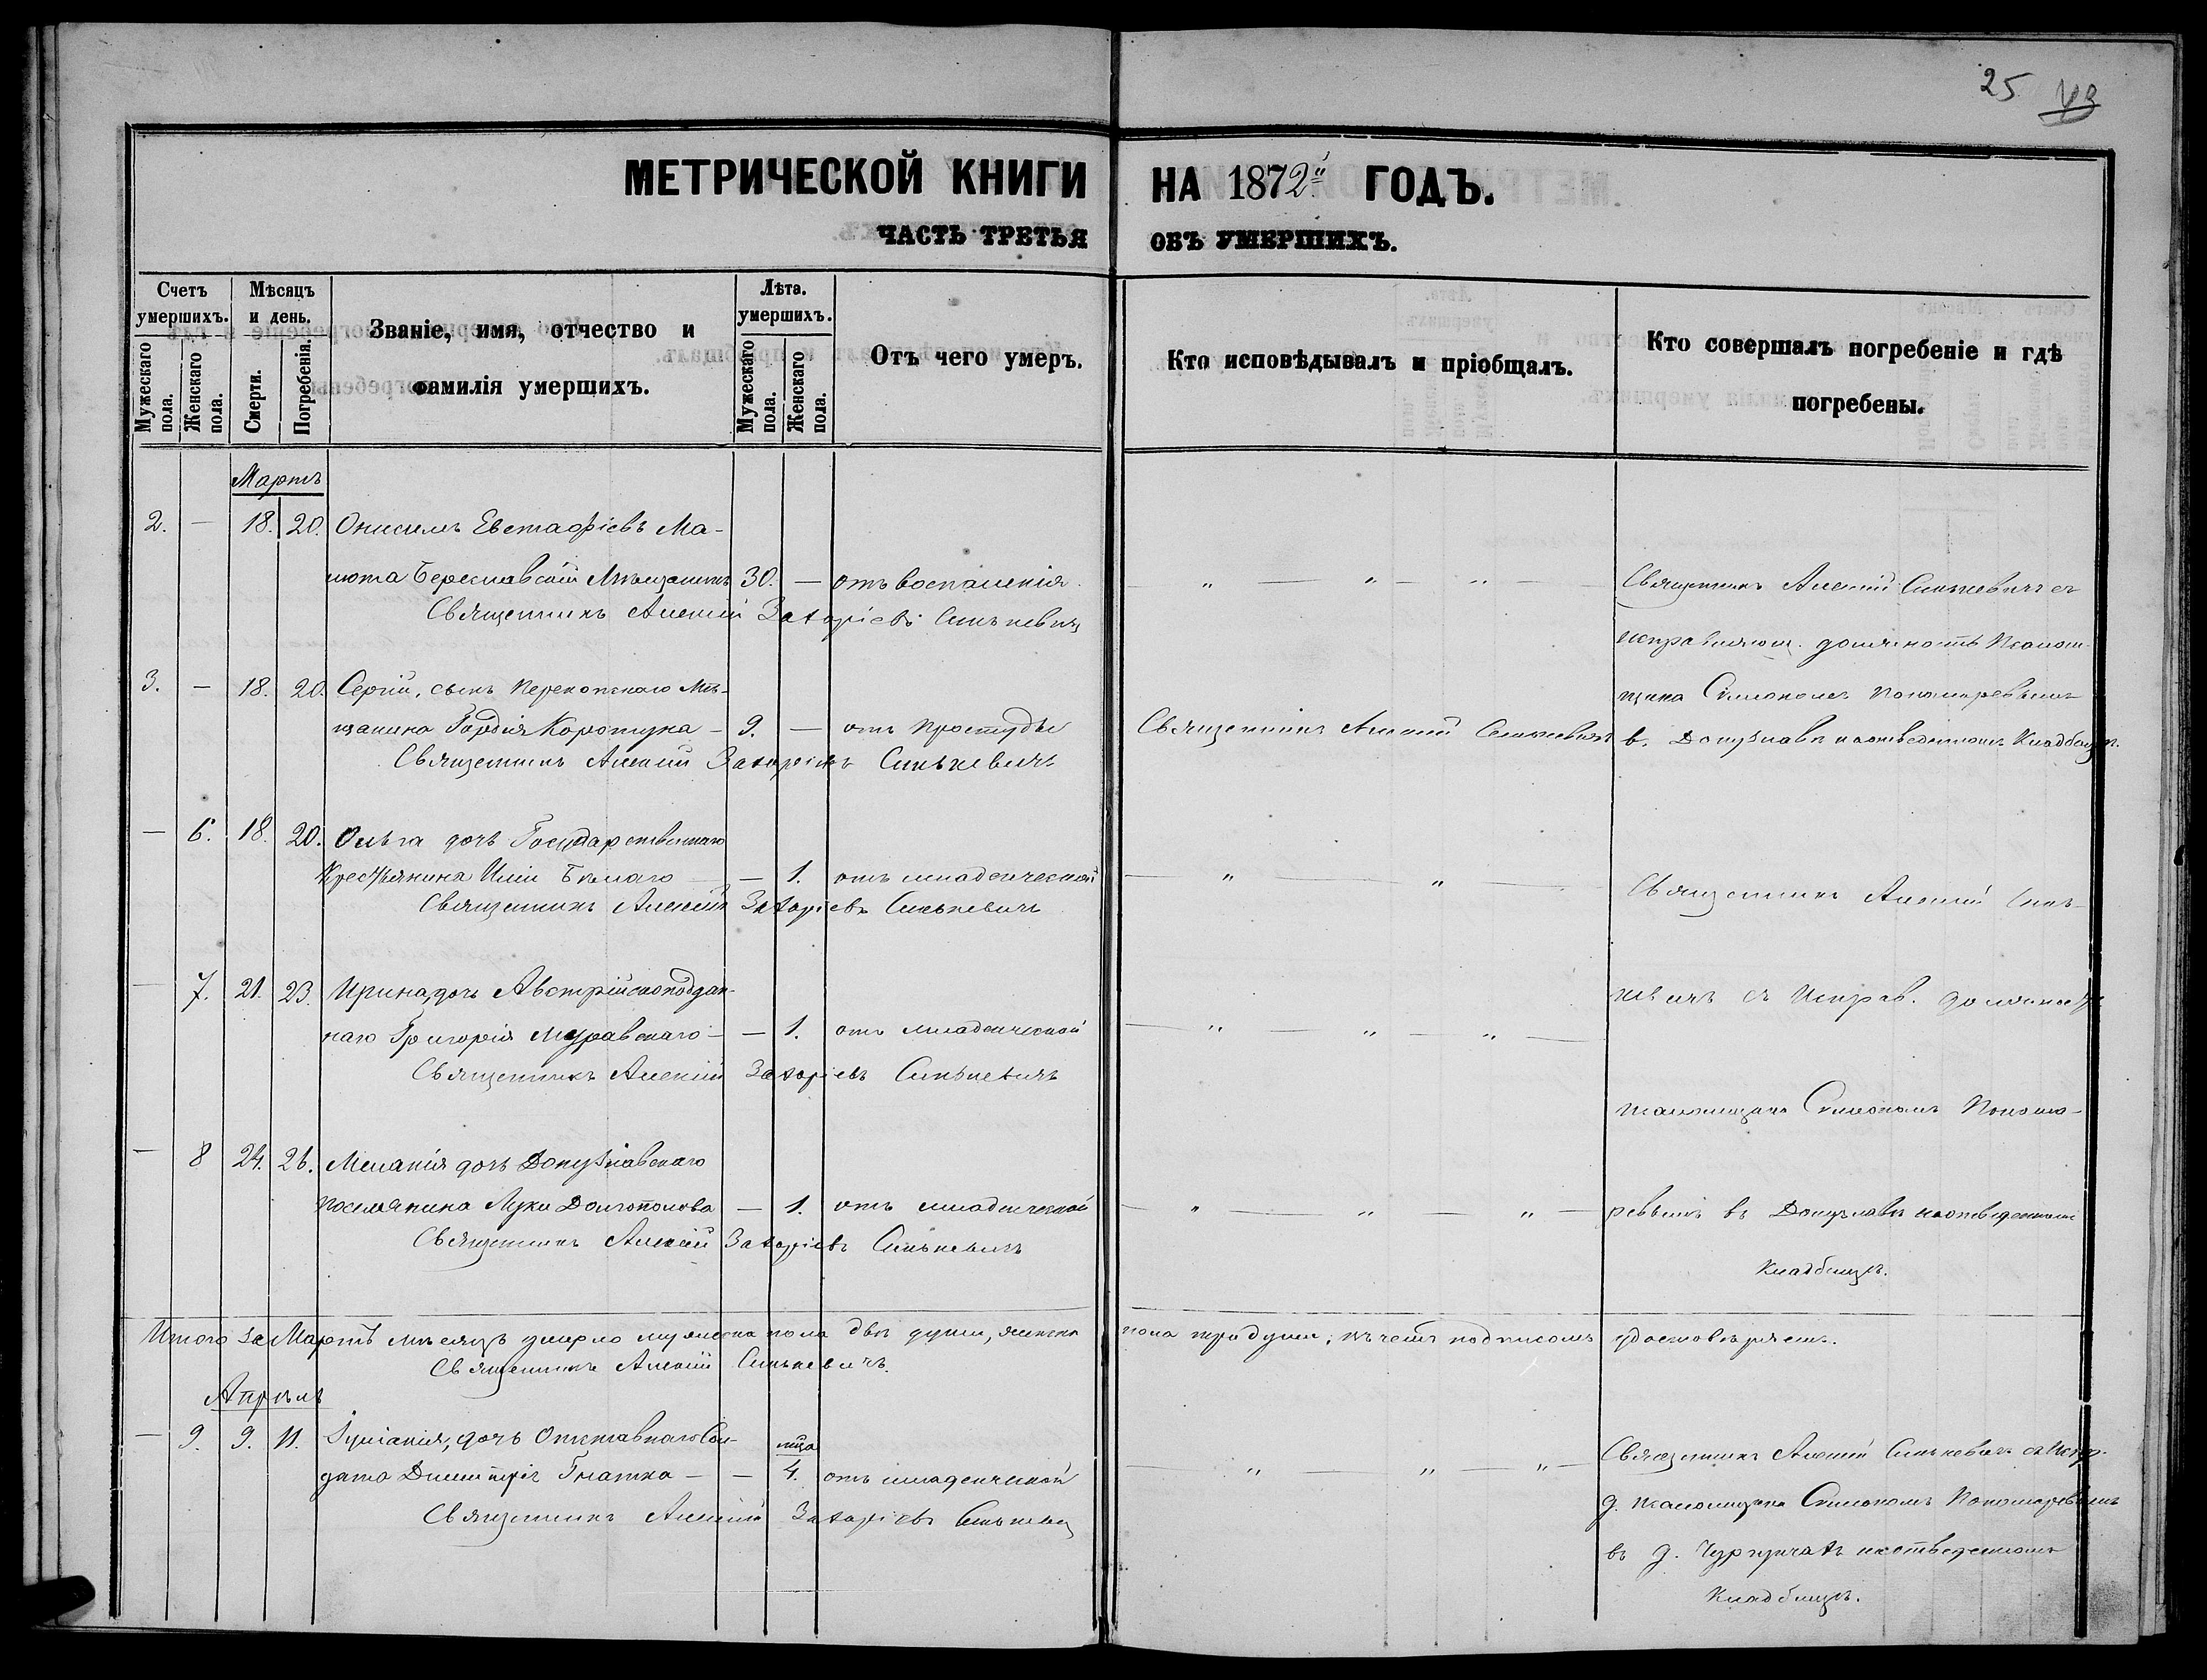 25 43
МЕТРИЧЕСКОЙ КНИГИ НА 1872й ГОДЪ.
ЧАСТЬ ТРЕТЬЯ ОБЪ УМЕРШИХЪ.
Счетъ умершихъ.
Мужескаго пола.
Женскаго пола.
Мѣсяцъ и день.
Смерти.
Погребенія.
Званіе, имя, отчество и фамилія умершихъ.
Лѣта. умершихъ.
Мужескаго пола.
Женскаго пола.
Отъ чего умеръ.
Кто исповѣдывалъ и пріобщалъ.
Кто совершалъ погребеніе и гдѣ погребены.
Мартъ
2. — 18. 20. Онисимъ Евстафіевъ Ма-
люта Береславскій Мѣщанинъ 30. — отъ воспаленія. „ — „ — „ — Священникъ Алексій Синькевичъ съ
Священникъ Алексій Захаріевъ Синькевич
исправляющ. должность Псалом-
3. — 18. 20. Сергій, сынъ Перекопскаго Мѣ- щика Симономъ Пономаревымъ
щанина Гордія Коротука — 9. — отъ простуды Священникъ Алексій Синькевичъ в. Донузлавъ на отведенномъ Кладбищѣ.
Священникъ Алексій Захаріевъ Синькевичъ
— 6. 18. 20. Ольга дочь Государственнаго
Крестьянина Иліи Бѣлаго — — 1. отъ младенческой — „ — „ —
Священникъ Алексій Захаріевъ Синькевичъ Священникъ Алексій Синь-
— 7. 21. 23. Ирина, дочь Австрійскоподдан-
кевичъ съ Исправ. должность
наго Григорія Муравскаго — — 1. отъ младенческой — „ — „ — „ —
Священникъ Алексій Захаріевъ Синькевичъ
псаломщика Симономъ Понома-
— 8 24. 26. Меланія дочь Донузлавскаго
поселянина Луки Долгополова — 1. отъ младенческой — „ — „ — „ — ревымъ въ Донузлавѣ на отведенномъ
Священникъ Алексій Захаріевъ Синькевичъ
Кладбищѣ.
Итого за Мартъ мѣсяцъ умерло мужеска пола двѣ души, женска пола три души; въ чемъ подписомъ удостовѣряемъ.
Священникъ Алексій Синькевичъ.
Апрѣль
— 9. 9. 11. Іуліанія, дочь Отставнаго Сол- мца
дата Димитрія Гнатка — — 4. отъ младенческой — „ — „ — „ — Священникъ Алексій Синькевичъ съ Испр.
Священникъ Алексій Захаріевъ Синькевич
д. псаломщика Симономъ Пономаревымъ
въ д. на отведенномъ
Кладбищѣ.